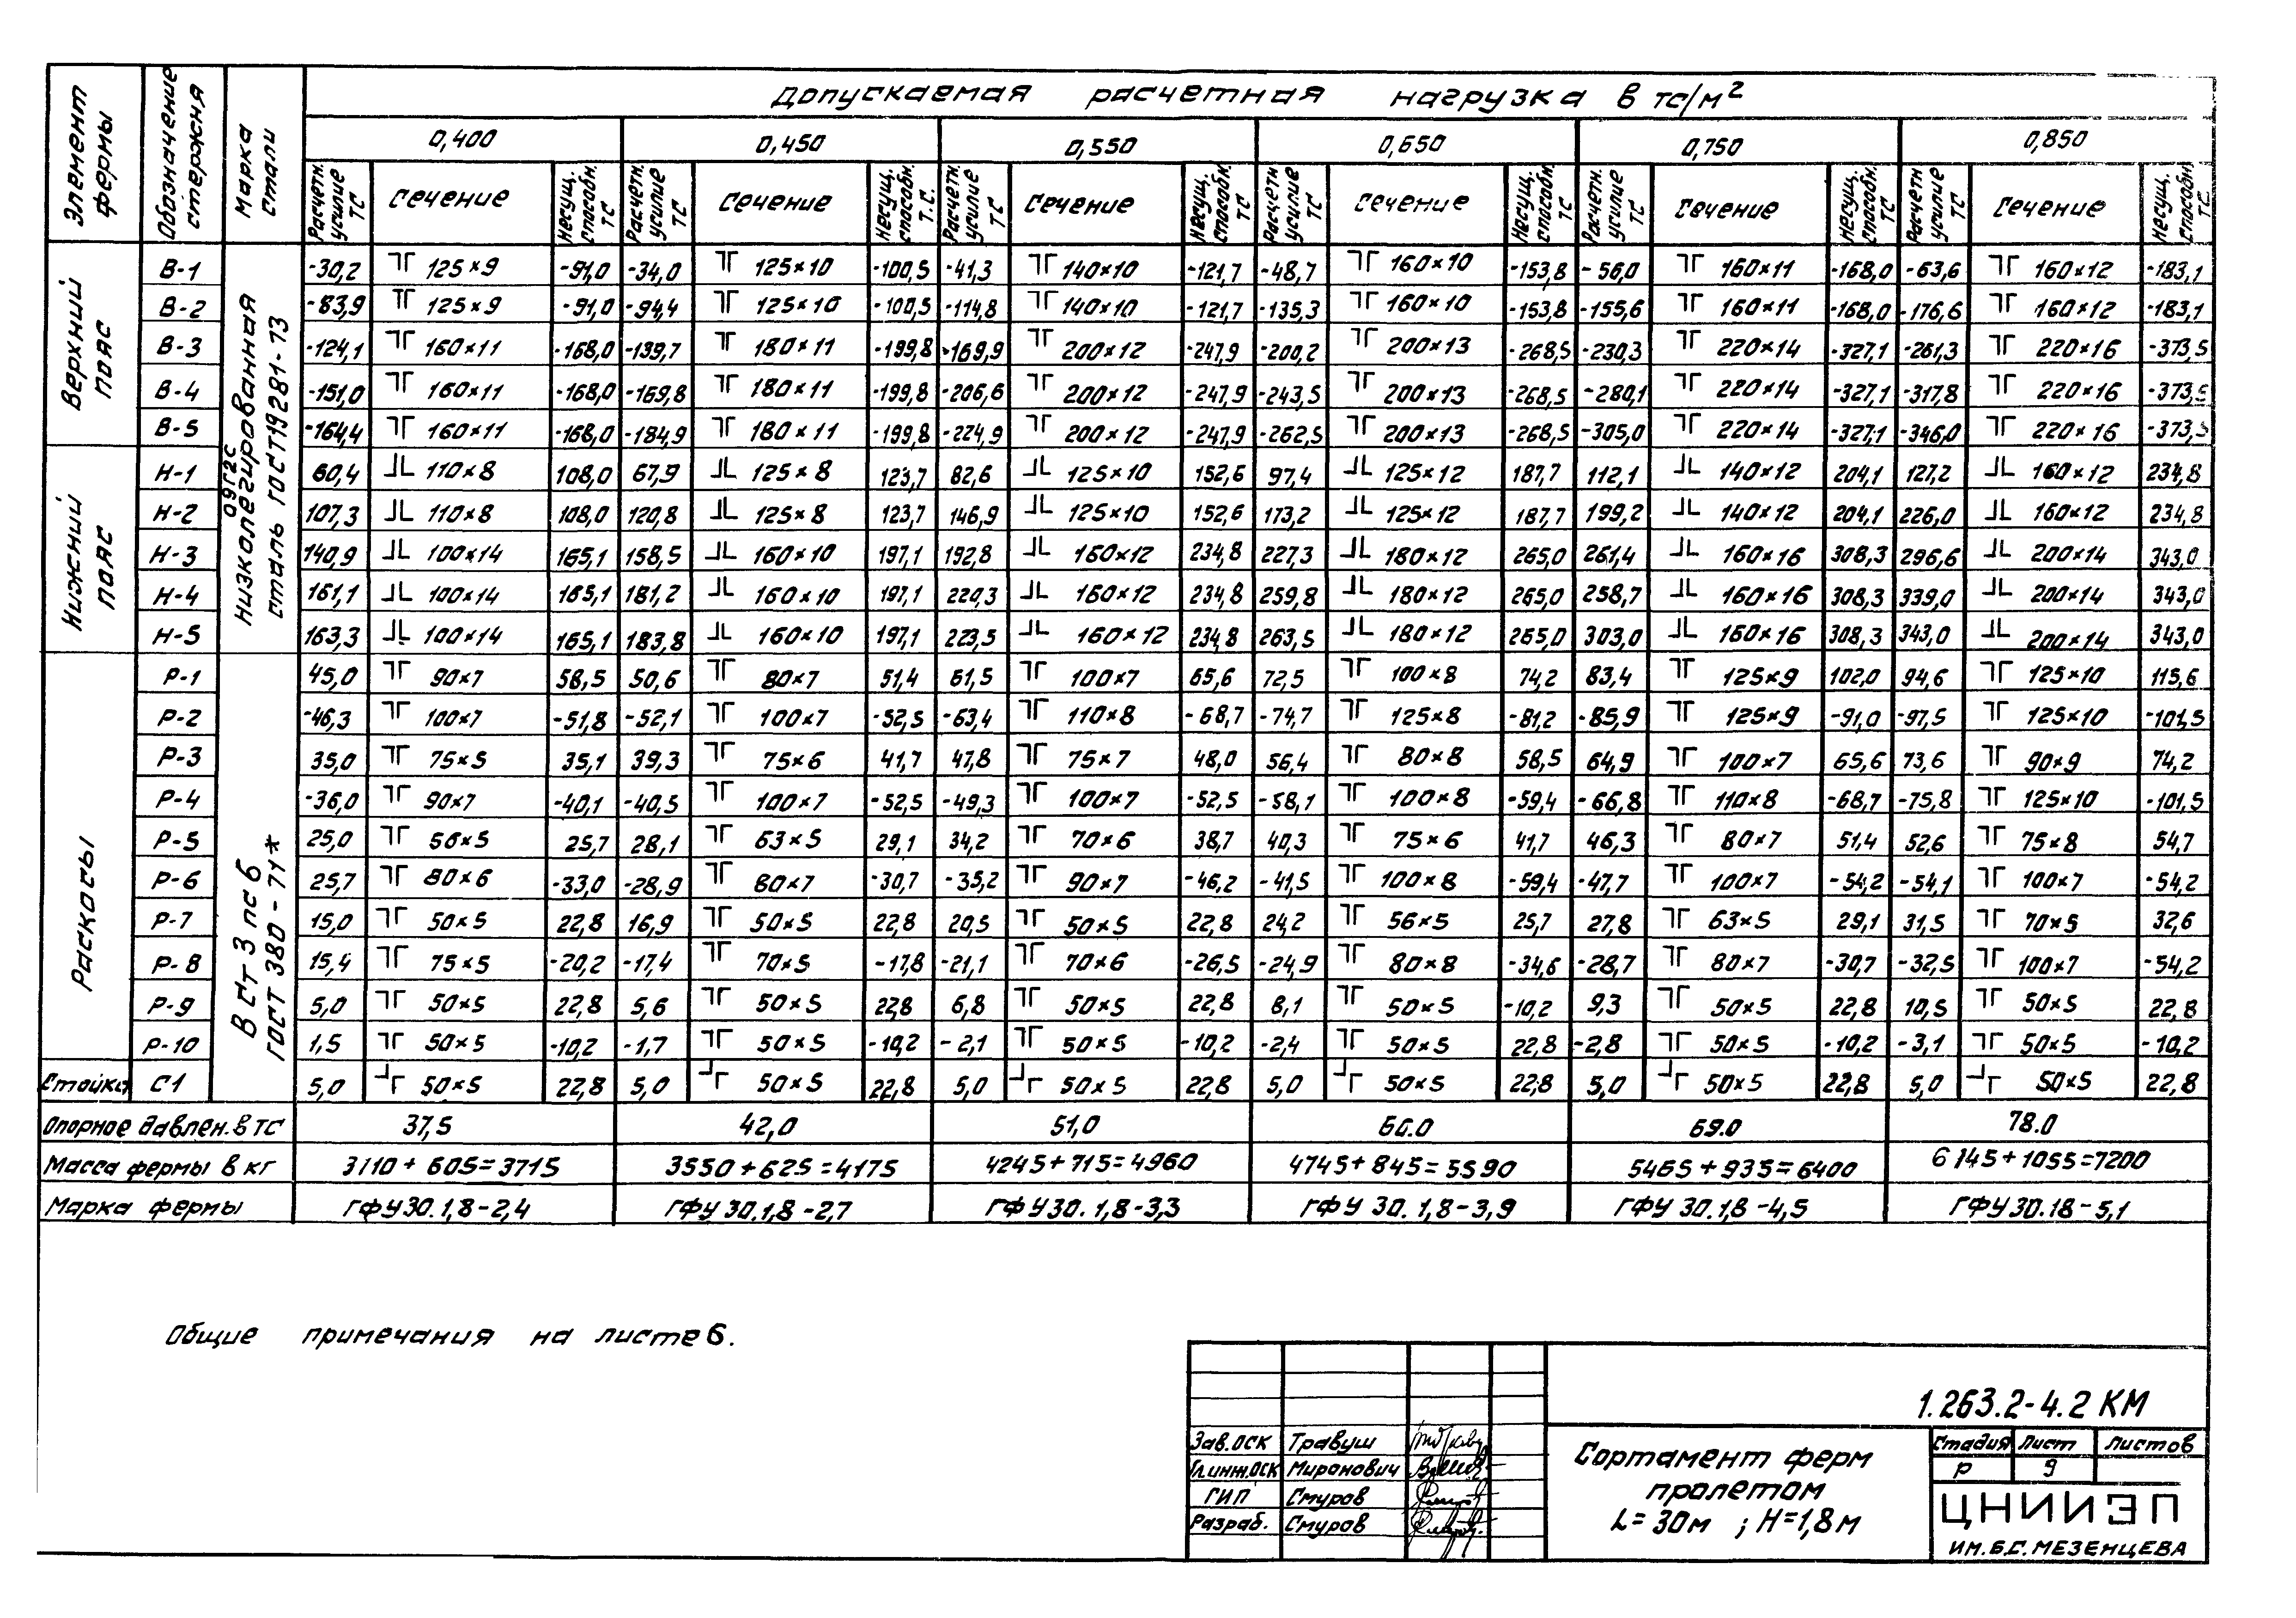 Допускаемая расчетная нагрузка в тс/м²
Элемент фермы
Обозначение стержня
Марка стали
0,400 0,450 0,550 0,650 0,750 0,850
Расчетн. усилие ТС Сечение Несущ. способн. ТС Расчетн. усилие ТС Сечение Несущ. способн. Т.С. Расчетн. усилие ТС Сечение Несущ. способн. ТС Расчетн усилие ТС Сечение Несущ. способн. ТС Расчетн. усилие ТС Сечение Несущ. способн. ТС Расчетн усилие ТС Сечение Несущ. способн. ТС
Верхний пояс
Низколегированная сталь ГОСТ19281-73
09Г2С
В-1 -30,2 ┐┌ 125×9 -91,0 -34,0 ┐┌ 125×10 -100,5 -41,3 ┐┌ 140×10 -121,7 -48,7 ┐┌ 160×10 -153,8 -56,0 ┐┌ 160×11 -168,0 -63,6 ┐┌ 160×12 -183,1
В-2 -83,9 ┐┌ 125×9 -91,0 -94,4 ┐┌ 125×10 -100,5 -114,8 ┐┌ 140×10 -121,7 -135,3 ┐┌ 160×10 -153,8 -155,6 ┐┌ 160×11 -168,0 -176,6 ┐┌ 160×12 -183,1
В-3 -124,1 ┐┌ 160×11 -168,0 -139,7 ┐┌ 180×11 -199,8 -169,9 ┐┌ 200×12 -247,9 -200,2 ┐┌ 200×13 -268,5 -230,3 ┐┌ 220×14 -327,1 -261,3 ┐┌ 220×16 -373,5
В-4 -151,0 ┐┌ 160×11 -168,0 -169,8 ┐┌ 180×11 -199,8 -206,6 ┐┌ 200×12 -247,9 -243,5 ┐┌ 200×13 -268,5 -280,1 ┐┌ 220×14 -327,1 -317,8 ┐┌ 220×16 -373,5
В-5 -164,4 ┐┌ 160×11 -168,0 -184,9 ┐┌ 180×11 -199,8 -224,9 ┐┌ 200×12 -247,9 -262,5 ┐┌ 200×13 -268,5 -305,0 ┐┌ 220×14 -327,1 -346,0 ┐┌ 220×16 -373,5
Нижний пояс
Н-1 60,4 ┘└ 110×8 108,0 67,9 ┘└ 125×8 123,7 82,6 ┘└ 125×10 152,6 97,4 ┘└ 125×12 187,7 112,1 ┘└ 140×12 204,1 127,2 ┘└ 160×12 234,8
Н-2 107,3 ┘└ 110×8 108,0 120,8 ┘└ 125×8 123,7 146,9 ┘└ 125×10 152,6 173,2 ┘└ 125×12 187,7 199,2 ┘└ 140×12 204,1 226,0 ┘└ 160×12 234,8
Н-3 140,9 ┘└ 100×14 165,1 158,5 ┘└ 160×10 197,1 192,8 ┘└ 160×12 234,8 227,3 ┘└ 180×12 265,0 261,4 ┘└ 160×16 308,3 296,6 ┘└ 200×14 343,0
Н-4 161,1 ┘└ 100×14 165,1 181,2 ┘└ 160×10 197,1 220,3 ┘└ 160×12 234,8 259,8 ┘└ 180×12 265,0 258,7 ┘└ 160×16 308,3 339,0 ┘└ 200×14 343,0
Н-5 163,3 ┘└ 100×14 165,1 183,8 ┘└ 160×10 197,1 223,5 ┘└ 160×12 234,8 263,5 ┘└ 180×12 265,0 303,0 ┘└ 160×16 308,3 343,0 ┘└ 200×14 343,0
Раскосы
В Ст 3 пс 6
ГОСТ 380-71*
Р-1 45,0 ┐┌ 90×7 58,5 50,6 ┐┌ 80×7 51,4 61,5 ┐┌ 100×7 65,6 72,5 ┐┌ 100×8 74,2 83,4 ┐┌ 125×9 102,0 94,6 ┐┌ 125×10 115,6
Р-2 -46,3 ┐┌ 100×7 -51,8 -52,1 ┐┌ 100×7 -52,5 -63,4 ┐┌ 110×8 -68,7 -74,7 ┐┌ 125×8 -81,2 -85,9 ┐┌ 125×9 -91,0 -97,5 ┐┌ 125×10 -101,5
Р-3 35,0 ┐┌ 75×5 35,1 39,3 ┐┌ 75×6 41,7 47,8 ┐┌ 75×7 48,0 56,4 ┐┌ 80×8 58,5 64,9 ┐┌ 100×7 65,6 73,6 ┐┌ 90×9 74,2
Р-4 -36,0 ┐┌ 90×7 -40,1 -40,5 ┐┌ 100×7 -52,5 -49,3 ┐┌ 100×7 -52,5 -58,1 ┐┌ 100×8 -59,4 -66,8 ┐┌ 110×8 -68,7 -75,8 ┐┌ 125×10 -101,5
Р-5 25,0 ┐┌ 56×5 25,7 28,1 ┐┌ 63×5 29,1 34,2 ┐┌ 70×6 38,7 40,3 ┐┌ 75×6 41,7 46,3 ┐┌ 80×7 51,4 52,6 ┐┌ 75×8 54,7
Р-6 25,7 ┐┌ 80×6 -33,0 -28,9 ┐┌ 80×7 -30,7 -35,2 ┐┌ 90×7 -46,2 -41,5 ┐┌ 100×8 -59,4 -47,7 ┐┌ 100×7 -54,2 -54,1 ┐┌ 100×7 -54,2
Р-7 15,0 ┐┌ 50×5 22,8 16,9 ┐┌ 50×5 22,8 20,5 ┐┌ 50×5 22,8 24,2 ┐┌ 56×5 25,7 27,8 ┐┌ 63×5 29,1 31,5 ┐┌ 70×5 32,6
Р-8 15,4 ┐┌ 75×5 -20,2 -17,4 ┐┌ 70×5 -17,8 -21,1 ┐┌ 70×6 -26,5 -24,9 ┐┌ 80×8 -34,6 -28,7 ┐┌ 80×7 -30,7 -32,5 ┐┌ 100×7 -54,2
Р-9 5,0 ┐┌ 50×5 22,8 5,6 ┐┌ 50×5 22,8 6,8 ┐┌ 50×5 22,8 8,1 ┐┌ 50×5 -10,2 9,3 ┐┌ 50×5 22,8 10,5 ┐┌ 50×5 22,8
Р-10 1,5 ┐┌ 50×5 -10,2 -1,7 ┐┌ 50×5 -10,2 -2,1 ┐┌ 50×5 -10,2 -2,4 ┐┌ 50×5 22,8 -2,8 ┐┌ 50×5 -10,2 -3,1 ┐┌ 50×5 -10,2
Стойка С1 5,0 ┘┌ 50×5 22,8 5,0 ┘┌ 50×5 22,8 5,0 ┘┌ 50×5 22,8 5,0 ┘┌ 50×5 22,8 5,0 ┘┌ 50×5 22,8 5,0 ┘┌ 50×5 22,8
Опорное давлен. в ТС 37,5 42,0 51,0 60.0 69.0 78.0
Масса фермы в кг 3110+605=3715 3550+625=4175 4245+715=4960 4745+845=5590 5465+935=6400 6145+1055=7200
Марка фермы ГФУ30.1,8-2,4 ГФУ30.1,8-2,7 ГФУ30.1,8-3,3 ГФУ 30.1,8-3,9 ГФУ 30.1,8-4,5 ГФУ30.18-5,1
Общие примечания на листе 6.
1.263.2-4.2 КМ
Зав.ОСК Травуш
Гл.инж.ОСК Миронович
ГИП Смуров
Разраб. Смуров
Сортамент ферм
пролетом
L=30м ; Н=1,8м
Стадия Лист Листов
Р 9
ЦНИИЭП
ИМ. Б.С. МЕЗЕНЦЕВА